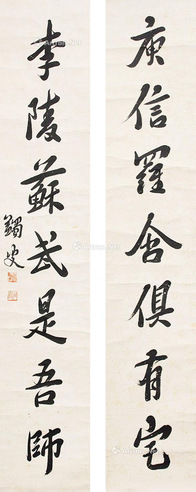 庾信羅含俱有宅
李陵蘇武是吾師
蠲叟